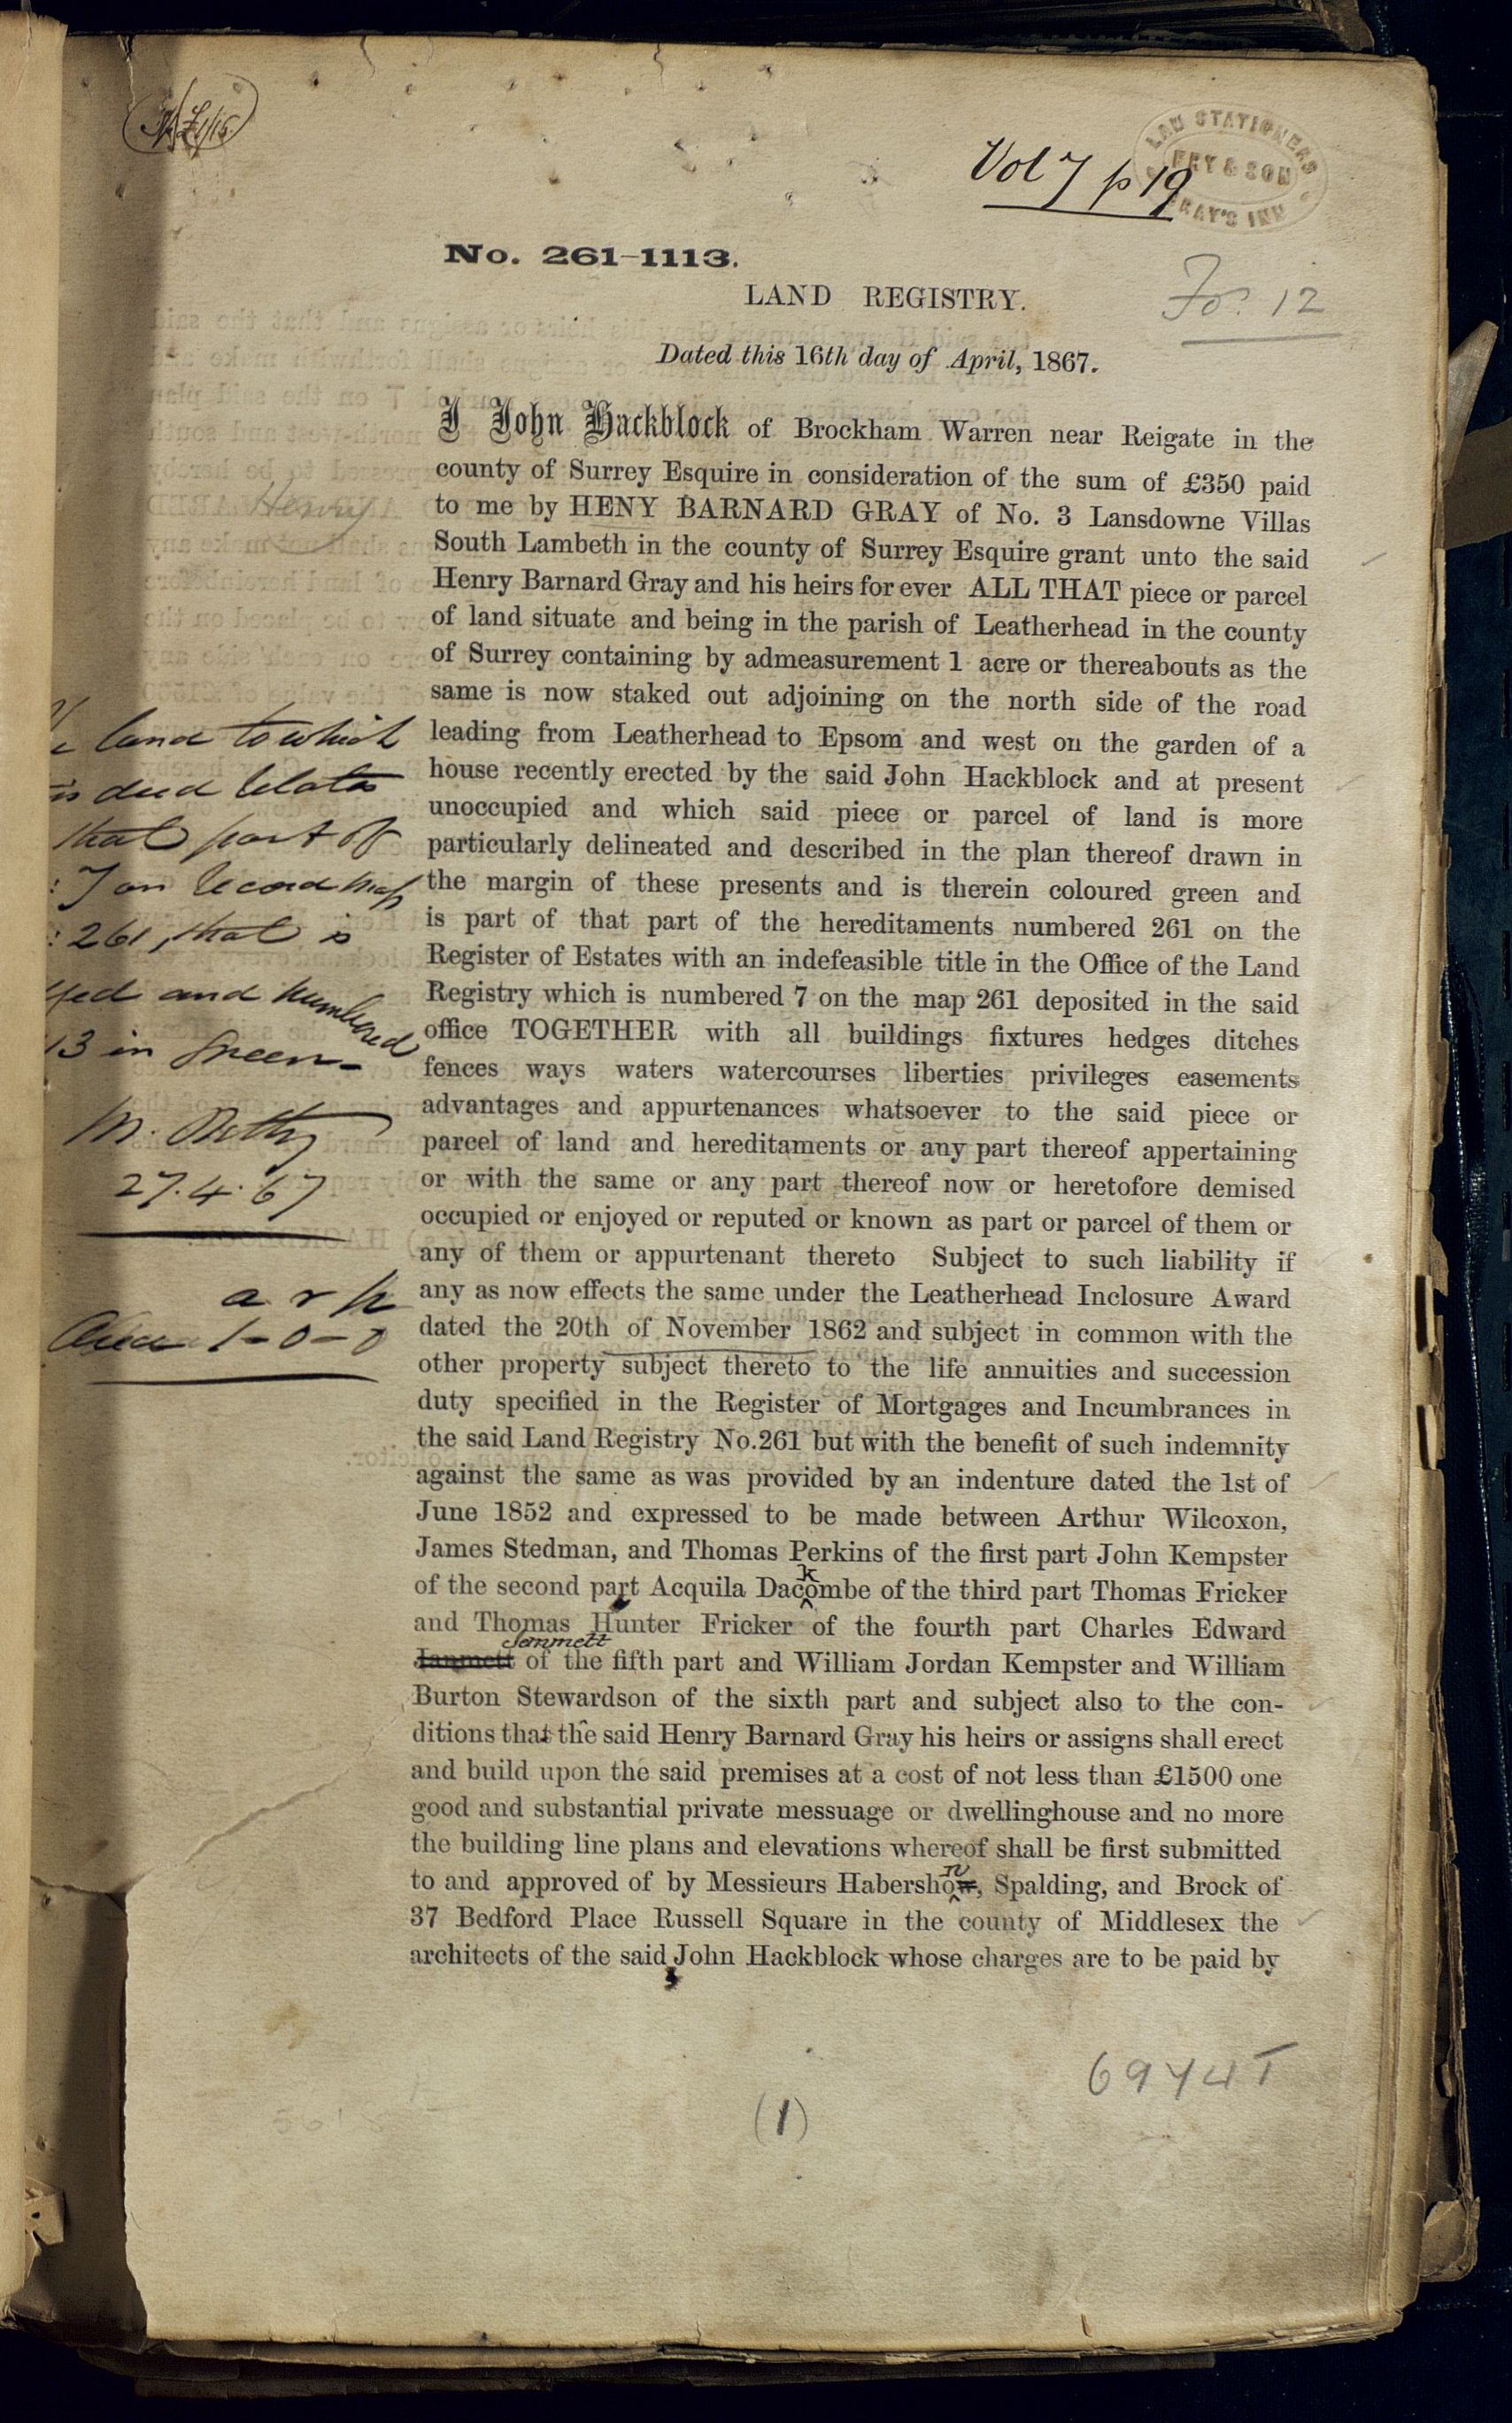 Vol 7 p 19
LAW STATIONERS
FRY & SON
GRAY'S INN
No. 261-1113.
LAND REGISTRY.
Fo. 12
Dated this 16th day of April, 1867.
I John Hackblock of Brockham Warren near Reigate in the
county of Surrey Esquire in consideration of the sum of £350 paid
Henry
to me by HENY BARNARD GRAY of No. 3 Lansdowne Villas
South Lambeth in the county of Surrey Esquire grant unto the said
Henry Barnard Gray and his heirs for ever ALL THAT piece or parcel
of land situate and being in the parish of Leatherhead in the county
of Surrey containing by admeasurement 1 acre or thereabouts as the
same is now staked out adjoining on the north side of the road
leading from Leatherhead to Epsom and west on the garden of a
house recently erected by the said John Hackblock and at present
unoccupied and which said piece or parcel of land is more
particularly delineated and described in the plan thereof drawn in
the margin of these presents and is therein coloured green and
is part of that part of the hereditaments numbered 261 on the
Register of Estates with an indefeasible title in the Office of the Land
Registry which is numbered 7 on the map 261 deposited in the said
office TOGETHER with all buildings fixtures hedges ditches
fences ways waters watercourses liberties privileges easements
advantages and appurtenances whatsoever to the said piece or
parcel of land and hereditaments or any part thereof appertaining
or with the same or any part thereof now or heretofore demised
occupied or enjoyed or reputed or known as part or parcel of them or
any of them or appurtenant thereto Subject to such liability if
any as now effects the same under the Leatherhead Inclosure Award
dated the 20th of November 1862 and subject in common with the
other property subject thereto to the life annuities and succession
duty specified in the Register of Mortgages and Incumbrances in
the said Land Registry No.261 but with the benefit of such indemnity
against the same as was provided by an indenture dated the 1st of
June 1852 and expressed to be made between Arthur Wilcoxon,
James Stedman, and Thomas Perkins of the first part John Kempster
k
of the second part Acquila Dacombe of the third part Thomas Fricker
and Thomas Hunter Fricker of the fourth part Charles Edward
Jemmett
Janmett of the fifth part and William Jordan Kempster and William
Burton Stewardson of the sixth part and subject also to the con-
ditions that the said Henry Barnard Gray his heirs or assigns shall erect
and build upon the said premises at a cost of not less than £1500 one
good and substantial private messuage or dwellinghouse and no more
the building line plans and elevations whereof shall be first submitted
n
to and approved of by Messieurs Habershow, Spalding, and Brock of
37 Bedford Place Russell Square in the county of Middlesex the
architects of the said John Hackblock whose charges are to be paid by
land to which
deed relates
that part of
7 on record map
261, that is
and numbered
13 in Green
27.4.67
a r p
Area 1-0-0
6974 T
(1)